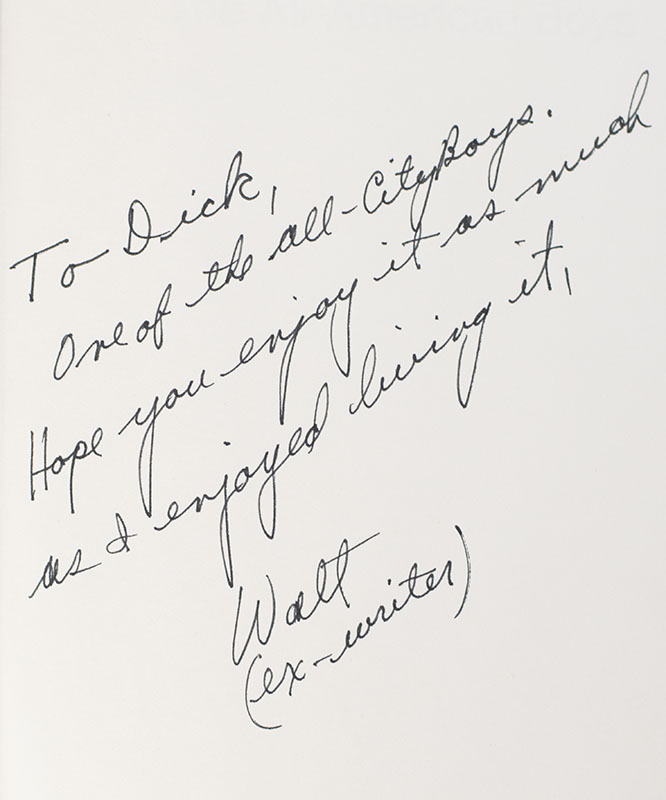 To Dick,
One of the all-City Boys.
Hope you enjoy it as much
as I enjoyed living it,
Walt
(ex-writer)